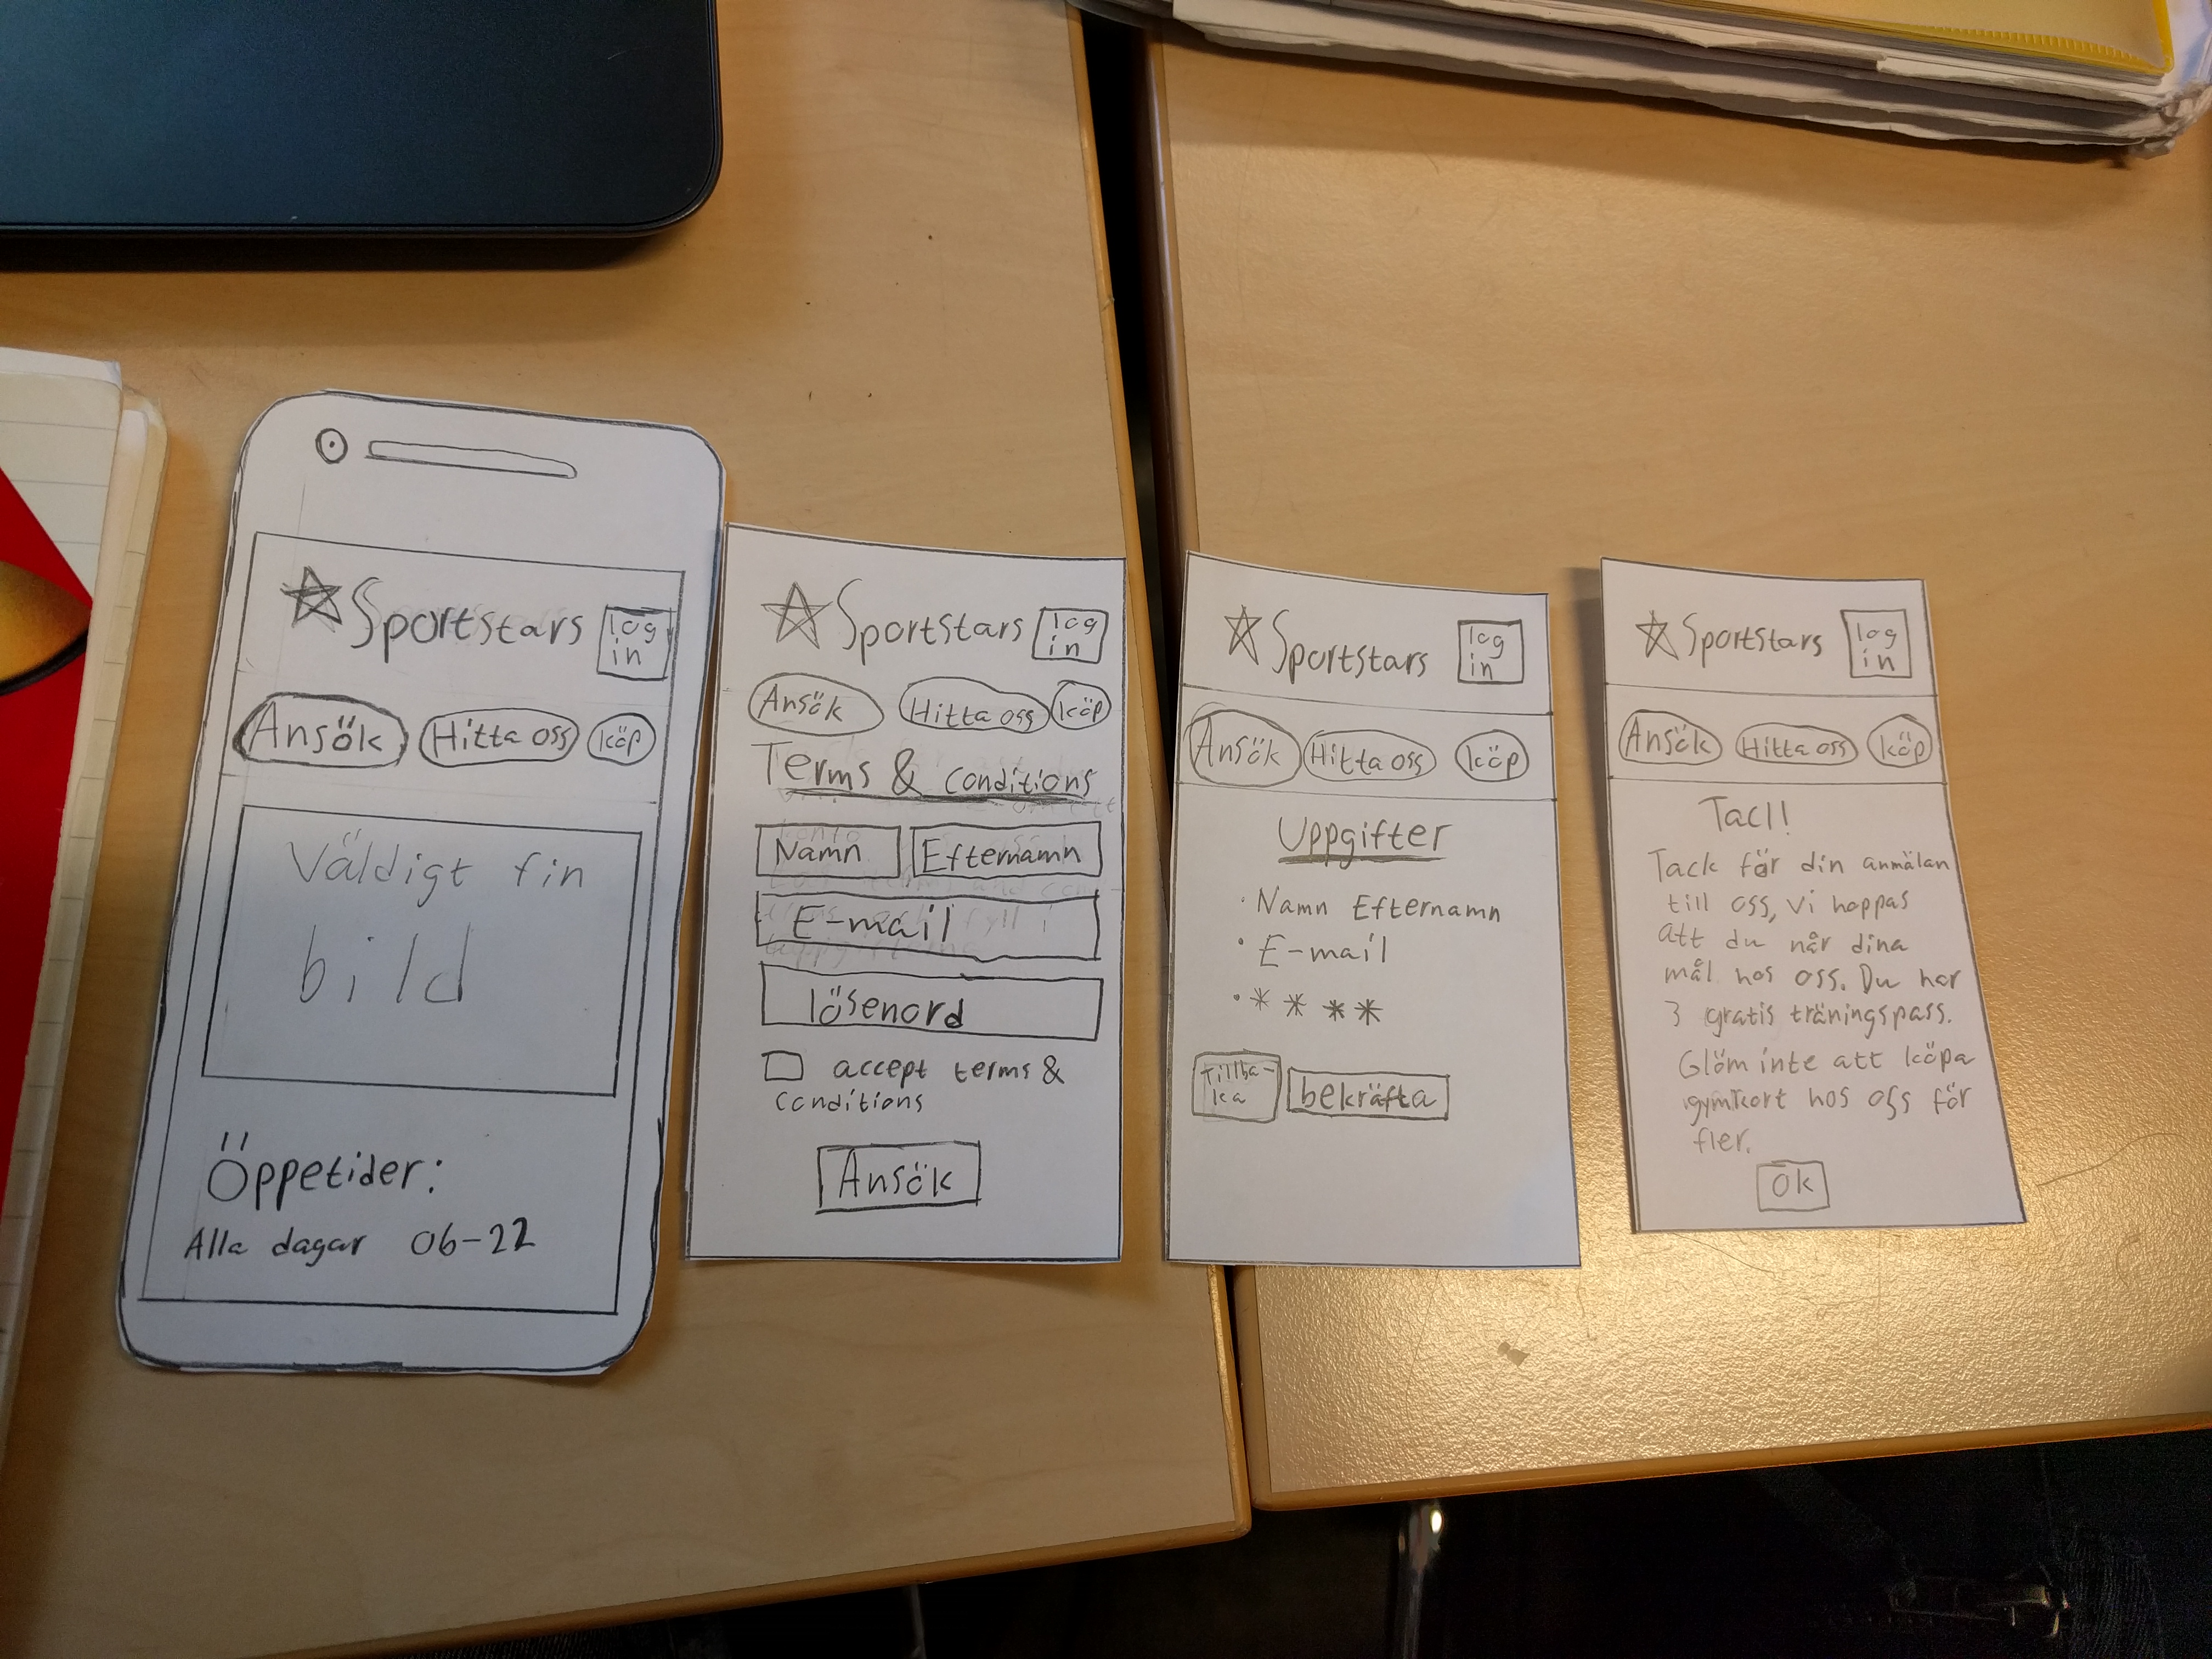 Sportstars
log
in
Ansök
Hitta oss
köp
Väldigt fin
bild
Öppetider:
Alla dagar 06-22
Sportstars
log
in
Ansök
Hitta oss
köp
Terms & conditions
Namn
Efternamn
E-mail
lösenord
accept terms &
conditions
Ansök
Sportstars
log
in
Ansök
Hitta oss
köp
Uppgifter
· Namn Efternamn
· E-mail
· * * * *
Tillba-
ka
bekräfta
Sportstars
log
in
Ansök
Hitta oss
köp
Tack!
Tack för din anmälan
till oss, vi hoppas
att du når dina
mål hos oss. Du har
3 gratis träningspass.
Glöm inte att köpa
gymkort hos oss för
fler.
Ok